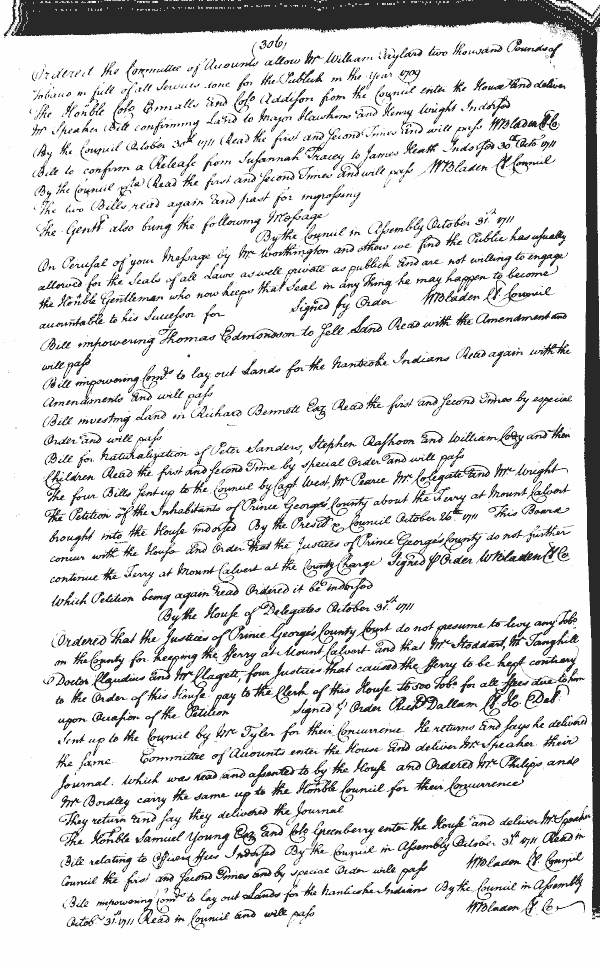 (306)
Ordered the Committee of Accounts allow Mr William Taylard two thousand Pounds of
Tobacco in full of all Services done for the Publick in the Year 1709
The Honble Colo Ennalls and Colo Addison from the Council enter the House and deliver
Mr Speaker Bill confirming Land to Major Hawkins and Henry Wright Indorsed
By the Council October 30th 1711 Read the first and second Times and will pass WBladen Cl Co
Bill to confirm a Release from Susannah Tracey to James Heath Indorsed 30th Octo 1711
By the Council Read the first and second Times and will pass WBladen Cl Council
The two Bills read again and past for ingrossing
The Gentn also bring the following Message
By the Council in Assembly October 31st 1711
On Perusal of your Message by Mr Worthington and others we find the Public has usually
allowed for the Seals of all Laws as well private as publick and are not willing to engage
the Honble Gentleman who now keeps that Seal in any thing he may happen to become
accountable to his Successor for Signed by Order WBladen Cl Council
Bill impowering Thomas Edmondson to sell Land Read with the Amendment and
will pass
Bill impowering Comrs to lay out Lands for the Nanticoke Indians Read again with the
Amendments and will pass
Bill investing Land in Richard Bennett Esq Read the first and second Times by especial
Order and will pass
Bill for Naturalization of Peter Sanders, Stephen Rashoon and William Cody and their
Children Read the first and second Time by special Order and will pass
The four Bills sent up to the Council by Capt West, Mr Pearce Mr Colegate and Mr Wright
The Petition of the Inhabitants of Prince George's County about the Ferry at Mount Calvert
brought into the House indorsed By the Presidt & Council October 26th 1711 This Board
concur with the House and Order that the Justices of Prince George's County do not further
continue the Ferry at Mount Calvert at the County Charge Signed P Order WBladen Cl Co
Which Petition being again read Ordered it be indorsed
By the House of Delegates October 31st 1711
Ordered that the Justices of Prince George's County Court do not presume to levy any Tobo
on the County for keeping the Ferry at Mount Calvert and that Mr Stoddart, Mr Tanyhill
Doctor Claudius and Mr Clagett, four Justices that caused the Ferry to be kept contrary
to the Order of this House pay to the Clerk of this House lb 500 Tobo for all Fees due to him
upon Occasion of the Petition Signed P Order Richd Dallam Cl Ho Del
Sent up to the Council by Mr Tyler for their Concurrence. He returns and says he delivered
the same Committee of Accounts enter the House and deliver Mr Speaker their
Journal. which was read and assented to by the House and Ordered Mr Philips and
Mr Bordley carry the same up to the Honble Council for their Concurrence
They return and say they delivered the Journal
The Honble Samuel Young Esq and Colo Greenberry enter the House and deliver Mr Speaker
Bill relating to Officers Fees Indorsed By the Council in Assembly October 31st 1711 Read in
Council the first and second Times and by special Order will pass WBladen Cl Council
Bill impowering Comrs to lay out Lands for the Nanticoke Indians By the Council in Assembly
Octobr 31st 1711 Read in Council and will pass WBladen Cl Co